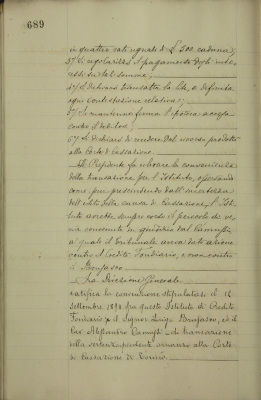 689
in quattro rate uguali di L. 500 cadauna;
3°/ Si regolarizza il pagamento degli inte-
ressi su tali somme;
4°/ Si dichiara transatta la lite, e definita
ogni contestazione relativa;
5°/ Si mantiene ferma l'ipoteca accesa
contro il debitore;
6°/ Si dichiara di recedere dal ricorso prodotto
alla Corte di Cassazione.
Il Presidente fa rilevare la convenienza
della transazione per l'Istituto, osservando
come pur prescindendo dall'incertezza
dell'esito della causa di Cassazione, l'Isti-
tuto avrebbe sempre corso il pericolo di ve-
nir convenuto in giudizio dal
a quale il Tribunale aveva dato azione
contro il Credito Fondiario, e non contro
il Bonfasso.
La Direzione Generale
ratifica la convenzione stipulatasi il 12
settembre 1898 fra questo Istituto di Credito
Fondiario e il Signor Luigi Bonfasso, ed il
Sig. Alessandro di transazione
della vertenza pendente innanzi alla Corte
di Cassazione di Torino.